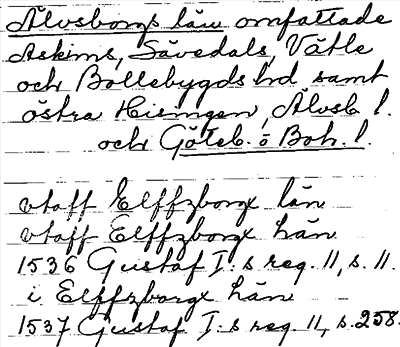 Älvsborgs län omfattade
Askims, Sävedals, Vätle
och Bollebygds hrd samt
östra Hisingen, Älvsb l.
och Göteb. o Boh. l.
vtaff Elffzborgx län
vtaff Elffzborgx hän
1536 Gustaf I:s reg. 11, s. 11.
i Elffzborgx hän
1537 Gustaf I:s reg. 11, s. 258.